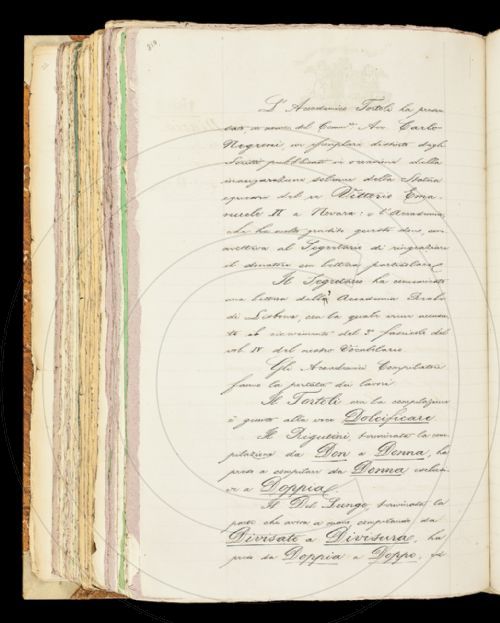 L'Accademico Tortoli ha presen
tato in nome del Comm.re Avv. Carlo
Negroni, un esemplare distinto degli
Scritti pubblicati in occasione della
inaugurazione solenne della Statua
equestre del re Vittorio Ema-
nuele II a Novara: e l'Accademia,
che ha molto gradito questo dono, com
metteva al Segretario di ringraziare
il donatore con lettera particolare
Il Segretario ha comunicato
una lettera della Accademia Reale
di Lisbona, con la quale viene accusa
to il ricevimento del 3° fascicolo del
vol. IV del nostro Vocabolario
Gli Accademici Compilatori
fanno la portata dei lavori
Il Tortoli con la compilazione
è giunto alla voce Dolcificare.
Il Rigutini, terminata la com
pilazione da Don a Donna, ha
preso a compilare da Donna
a Doppia
Il Del Lungo, terminata la
parte che aveva a mano compilando da
Divisato a Divisura, ha
preso da Doppia a Doppo,